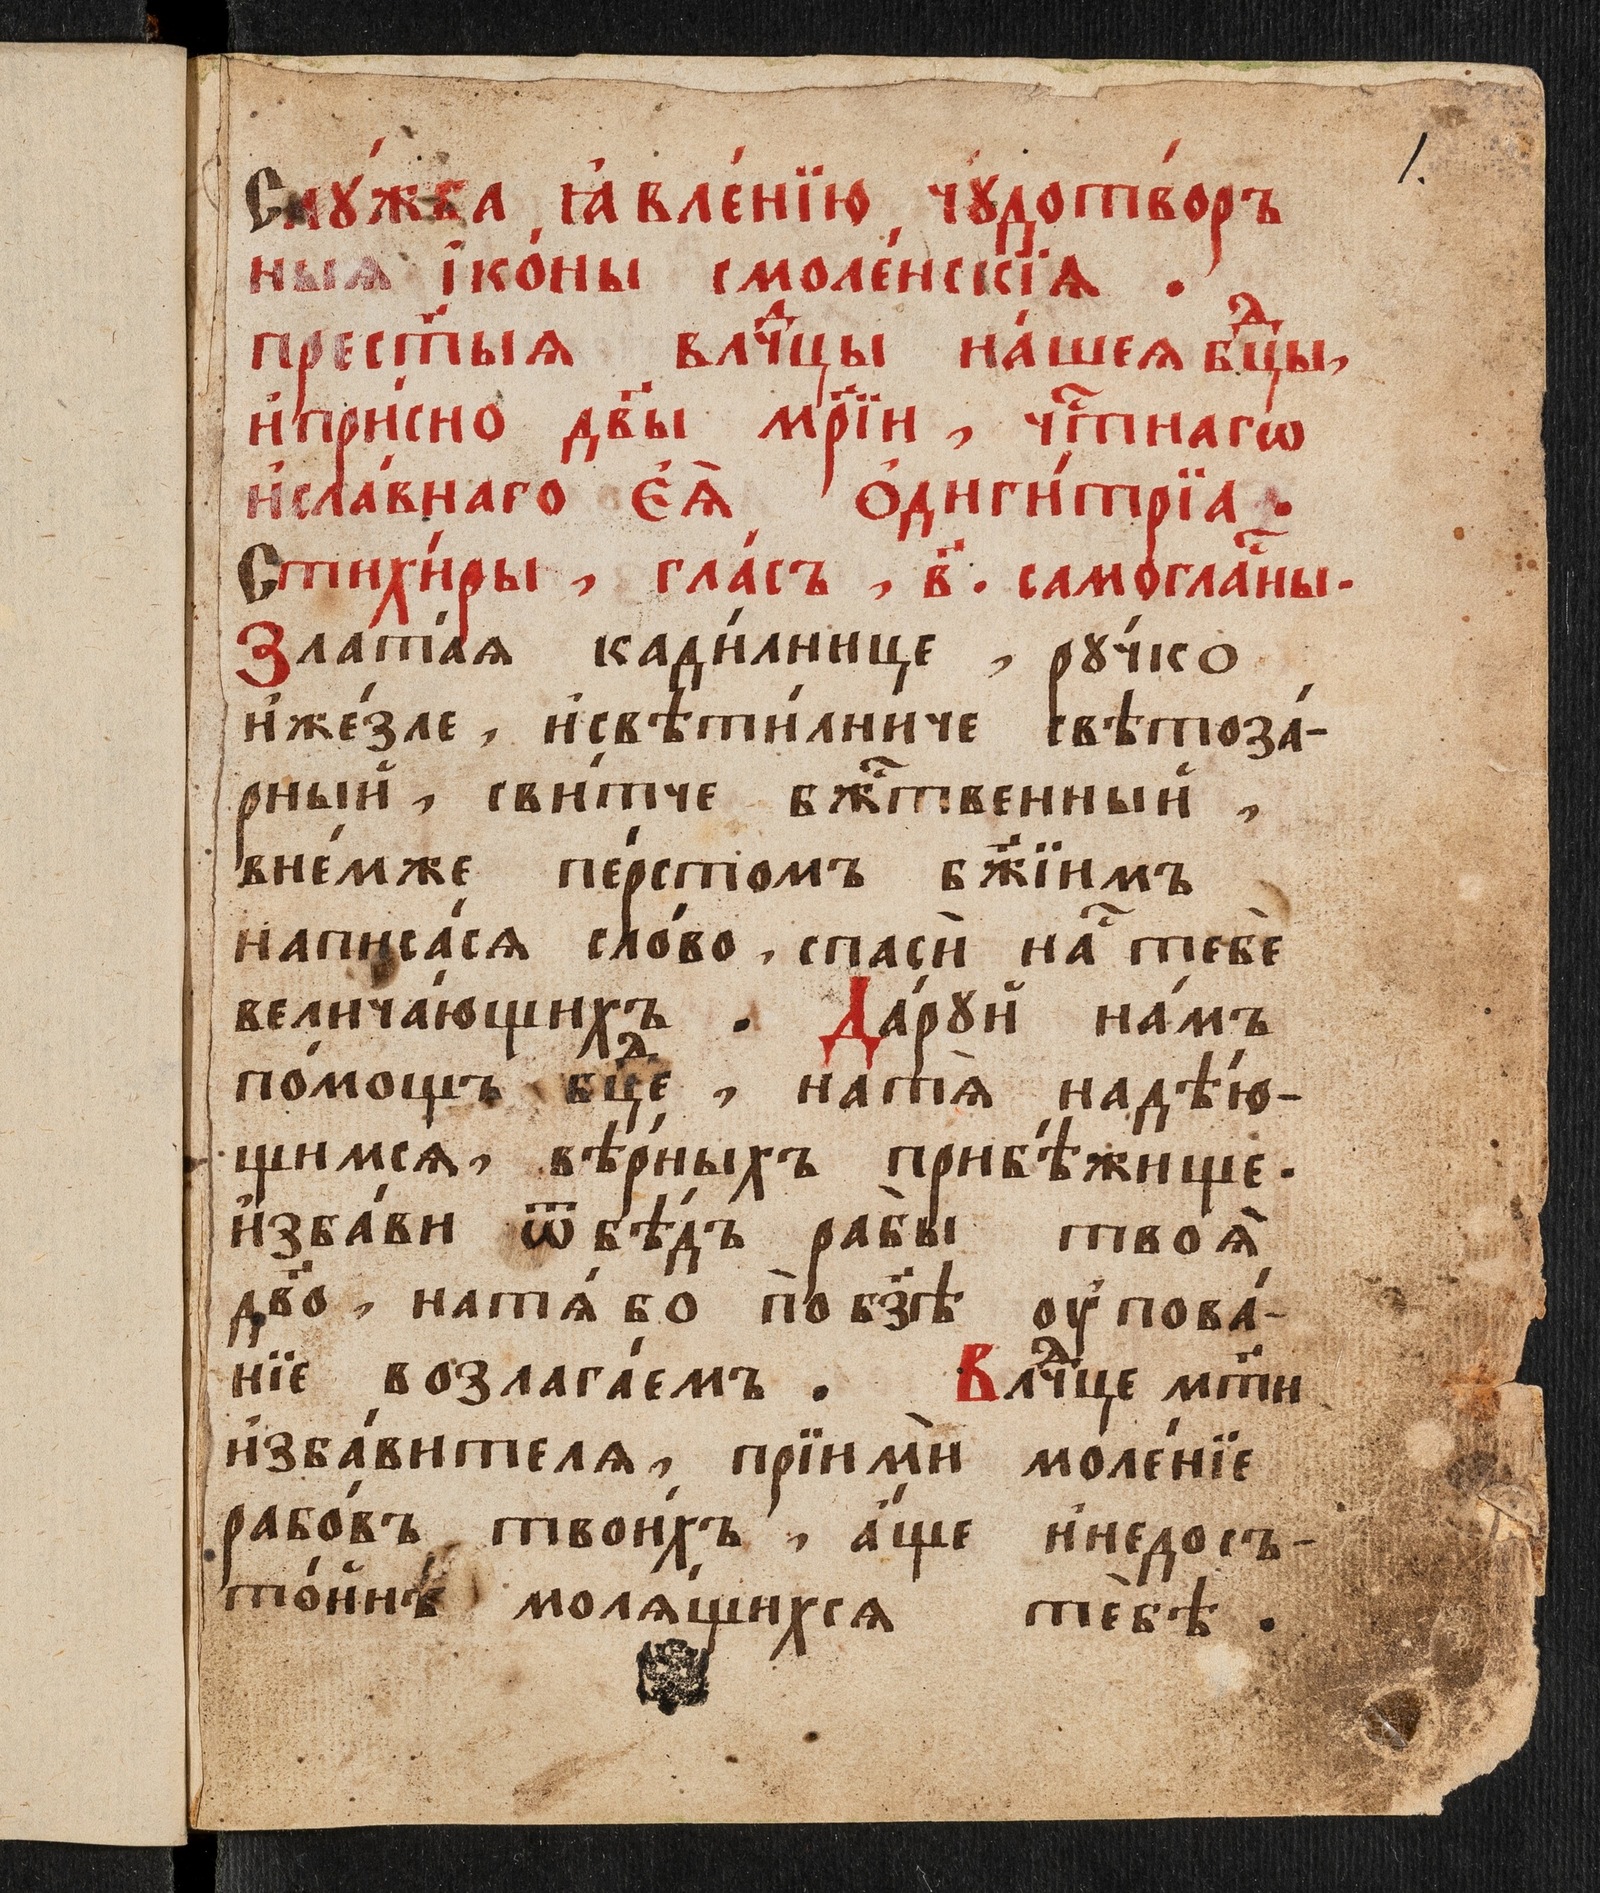 1.
Слꙋ́жба ꙗ҆вле́нїю чꙋдотво́ръ
ныѧ і҆ко́ны смоле́нскїѧ .
прест҃ыѧ влⷣчцы на́шеѧ бⷣцы,
и҆при́сно дв҃ы мр҃їи, чⷭ҇тнагѡ
и҆сла́внаго є҆ѧ̀ Ѻ҆диги́трїа .
Стихи́ры, гла́съ, в҃. самогла́ⷭ҇ны.
Злата́ѧ кади́лнице, рꙋ́чко
и҆же́зле, и҆свѣти́лниче свѣтоза́-
рный, сви́тче бжⷭ҇твенный,
вне́мже пе́рстомъ бж҃їимъ
написа́сѧ сло́во, спасѝ наⷭ҇ тебѐ
велича́ющихъ . Да́рꙋй на́мъ
по́мощъ бⷣце, натѧ̀ надѣ́ю-
щимсѧ, вѣ́рныхъ прибѣ́жище.
и҆зба́ви ѿбѣ́дъ рабы̀ твоѧ̀
дв҃о, натѧ́ бо по̀ бз҃ѣ оу҆пова́-
нїе возлага́емъ . Влⷣчце мт҃и
и҆зба́вителѧ, прїимѝ моле́нїе
рабо́въ твои́хъ, а҆́ще и҆недосъ-
то́йнѣ молѧ́щихсѧ тѐбѣ .